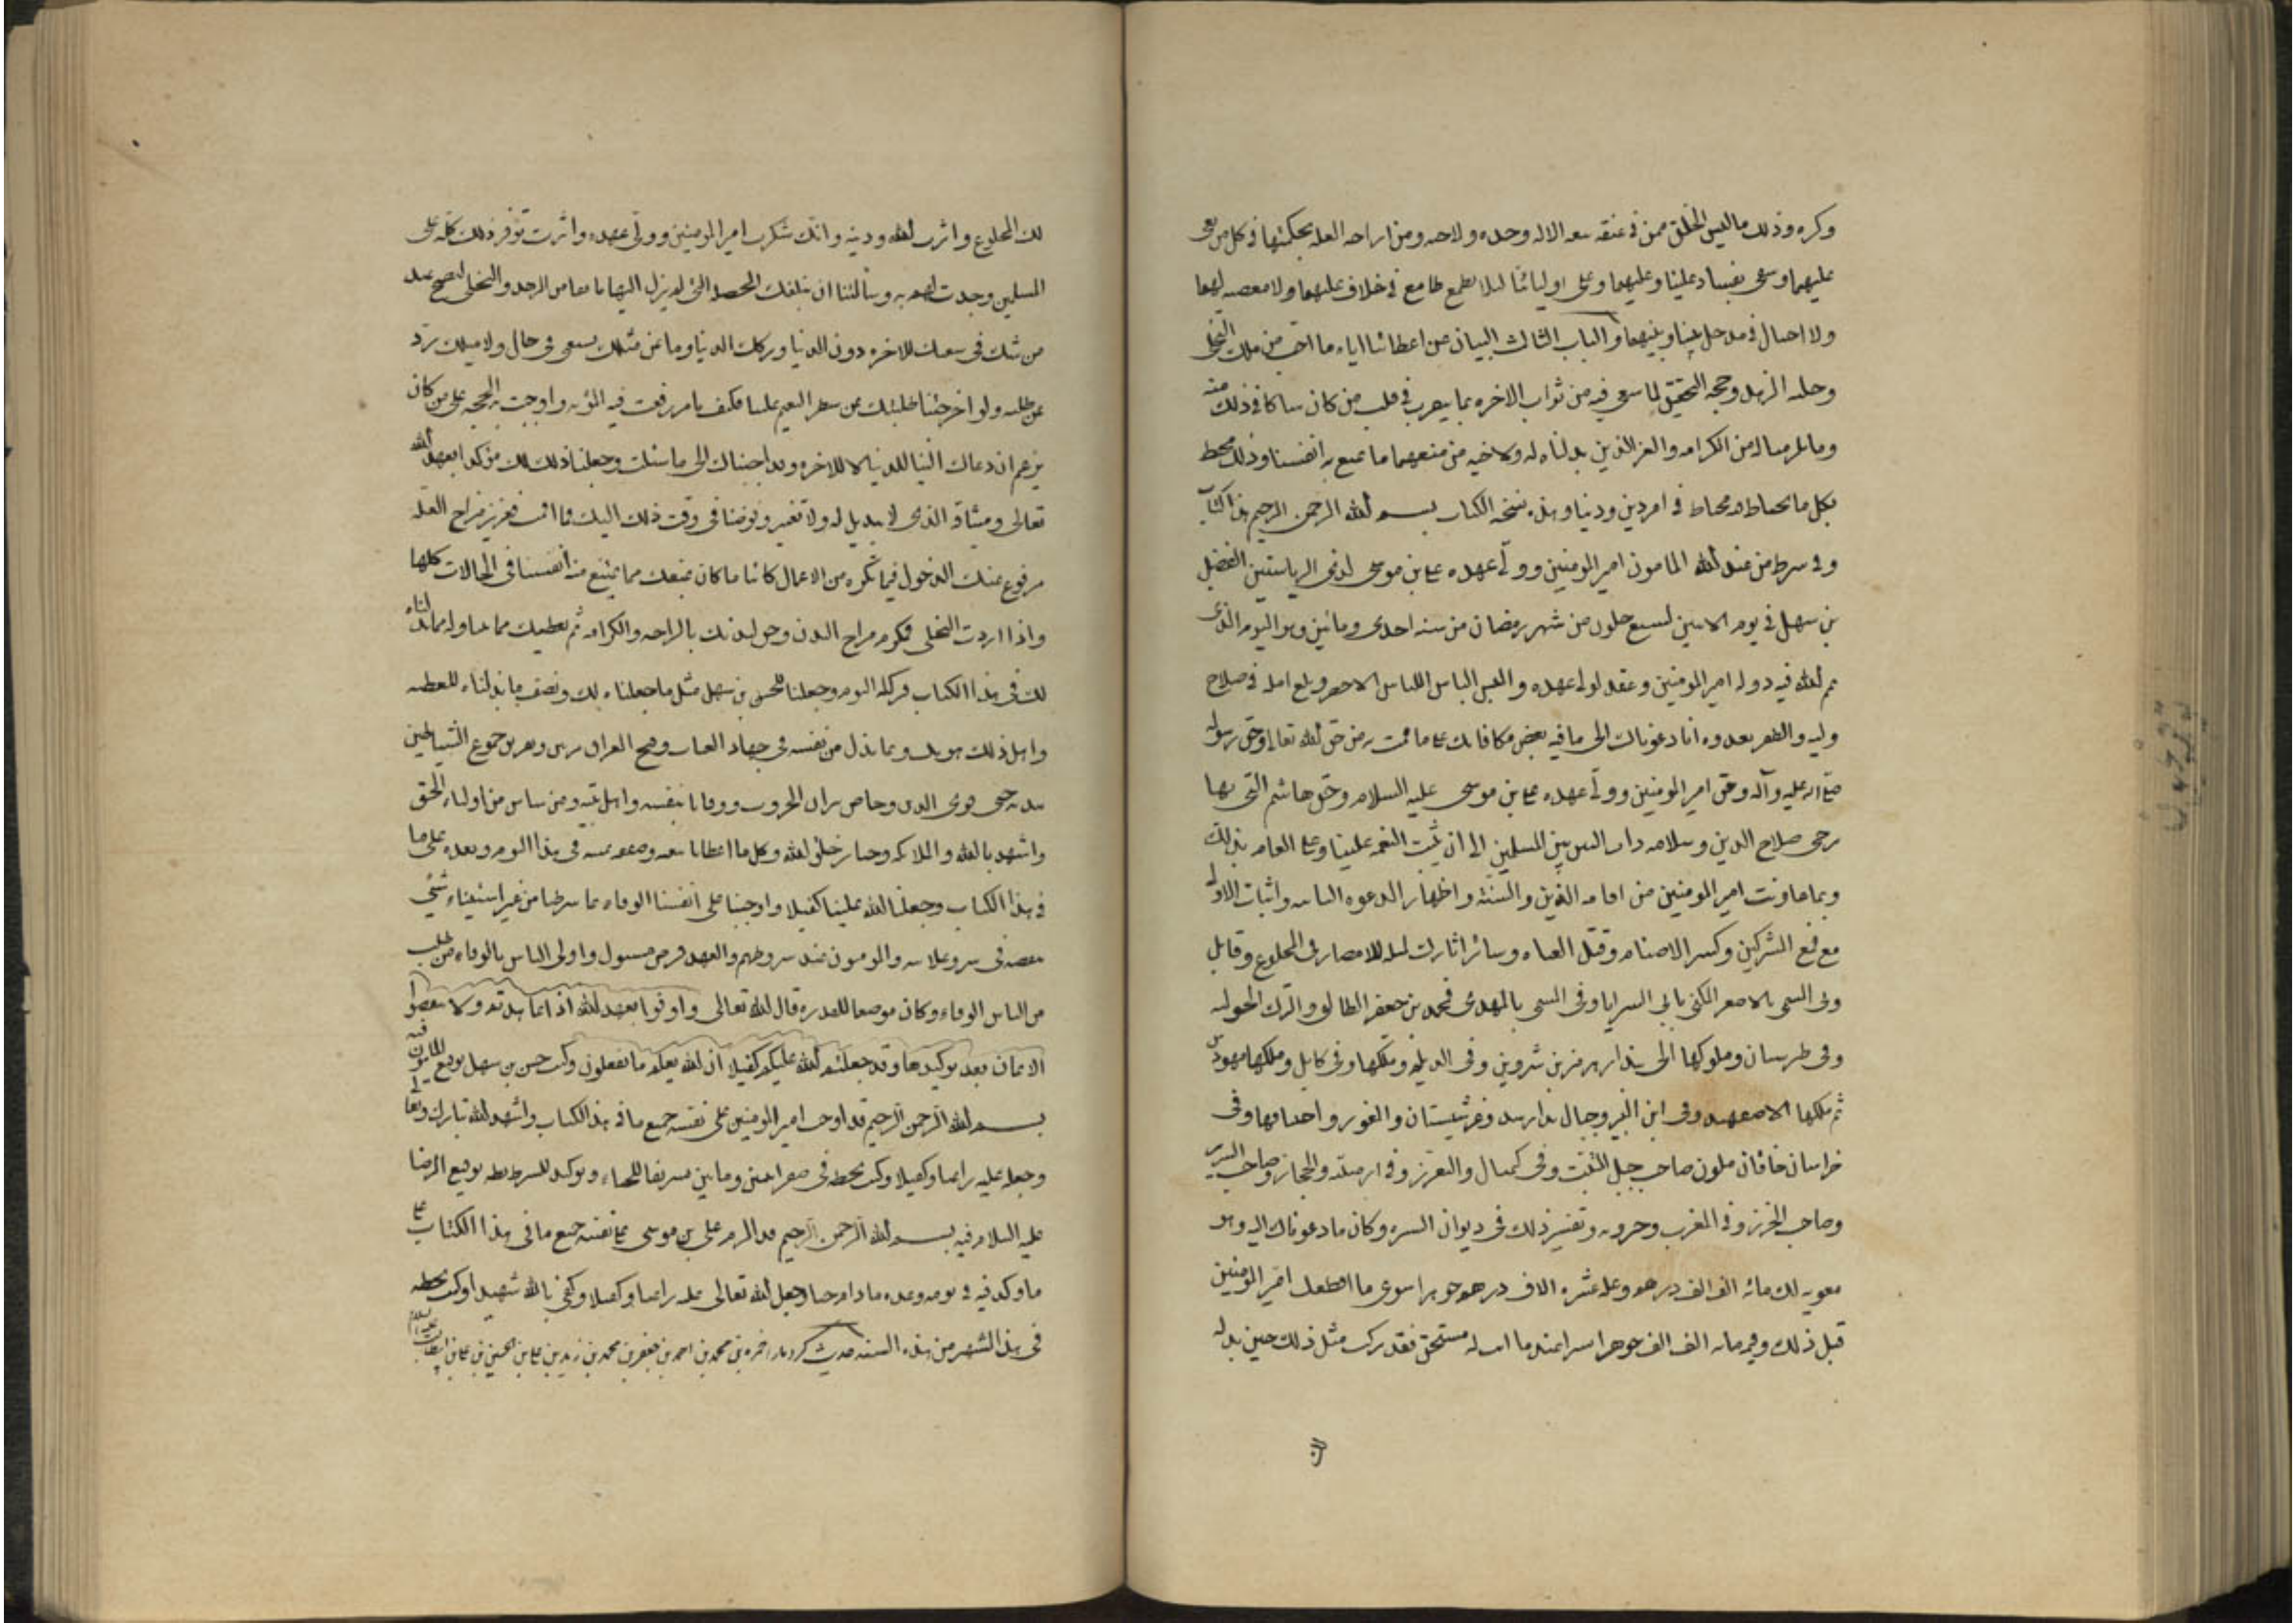 وكره وذلك ما ليس لخلق ممن في عنقه الا له وحده ولاحد ومن ازاحه العله بحكمتها في كل من بغى
عليهما وسعى بفساد علينا وعليهما وعلى اوليائنا لئلا يطمع طامع في خلاف عليهما ولا معصيه لهما
ولا احتيال في مدخل بيننا وبينهما والباب الثالث البيان عن اعطائنا اياه ما احب من ملك التخلي
وحليه الزهد وحجه التحقيق لما سعى فيه من ثواب الاخره بما في قلب من كان شاكا في ذلك منه
وما يلزمنا له من الكرامه والعز الذين بذلناه له ولاخيه من منعهما ما نمنع به انفسنا وذلك محيط
بكل ما يحتاط محتاط في امر دين ودنيا وهذه نسخه الكتاب بسم الله الرحمن الرحيم هذا كتاب
وشرط من عبد الله المامون امير المومنين وولي عهده علي بن موسى لذي الرياستين الفضل
بن سهل في يوم الاثنين لسبع خلون من شهر رمضان من سنه احدى ومائتين وهو اليوم الذي
تمم الله فيه دوله امير المومنين وعقد لولي عهده والبس الناس اللباس الاخضر وبلغ امله في صلاح
وليه والظفر بعدوه انا دعوناك الى ما فيه بعض مكافاتك على ما قمت به من حق الله تعالى وحق رسوله
صلى الله عليه وآله وحق امير المومنين وولي عهده علي بن موسى عليه السلام وحق هاشم التي بها
يرجى صلاح الدين وسلامه ذات البين بين المسلمين الى ان ثبت النعمه علينا وعلى العامه بذلك
وبما عاونت امير المومنين من اقامه الدين والسنه واظهار الدعوه الثانيه واثبات الاولى
مع قمع المشركين وكسر الاصنام وقتل العتاه وسائر اثارك للامصار في المخلوع وقابل
وفي المسمى بالاصفر المكنى بابي السرايا وفي المسمى بالمهدى محمد بن جعفر الطالبي والترك الخوليه
وفي طبرستان وملوكها الى بندار هرمز بن شروين وفي الديلم وملكها وفي كابل وملكها مهورس
ثم ملكها الاصفهبد وفي ابن البرم وجبال بدارسد وغرشستان والغور واصنافها وفي
خراسان خاقان وملون صاحب جبل التبت وفي كيمال والتغزغز وفي ارمينيه والحجاز وصاحب السرير
وصاحب الخزر وفي المغرب وحروبه وتفسير ذلك في ديوان السيره وكان ما دعوناك اليه وهو
معونه لك مائه الف الف درهم وغله عشره الاف الف درهم جوهرا سوى ما اقطعك امير المومنين
قبل ذلك وقيمه مائه الف الف جوهرا يسيرا عندنا ما انت له مستحق فقد تركت مثل ذلك حين بذله
لك المخلوع واثرت الله ودينه وانك شكرت امير المومنين وولي عهده واثرت توفر ذلك كله على
المسلمين وجدت لهم به وسألتنا ان نبلغك الخصله التي لم تزل اليها تائقا من الزهد والتخلي ليصح عند
من شك في سعيك للاخره دون الدنيا وتركك الدنيا وما عن مثلك يستغنى في حال ولا مثلك يرد
عن طلبه ولو اخرجتنا طلبتك عن شطر النعيم علينا فكيف بامر رفعت فيه المؤنه واوجبت به الحجه على من كان
يزعم ان دعاك الينا للدنيا لا للاخره وقد اجبناك الى ما سئلت وجعلنا ذلك لك مؤكدا بعهد الله
تعالى وميثاقه الذي لا تبديل له ولا تغيير وفوضنا في وقت ذلك اليك فما اقمت فعزيز مزاح العله
مدفوع عنك الدخول فيما تكره من الاعمال كائنا ما كان نمنعك مما نمنع منه انفسنا في الحالات كلها
واذا اردت التخلي فمكرم مزاح البدن وحق لبدنك بالراحه والكرامه ثم نعطيك مما تتناوله مما بذلناه
لك في هذا الكتاب فتركته اليوم وجعلنا للحسن بن سهل مثل ما جعلناه لك ونصف ما بذلناه للعطيه
واهل ذلك هو لك وبما بذل من نفسه في جهاد العتاه وفتح العراق مرتين وتفريق جموع الشياطين
بيديه حتى قوي الدين وخاض نيران الحروب ووقانا بنفسه واهل بيته ومن ساس من اولياء الحق
واشهدنا الله والملائكه وخيار خلق الله وكل من اعطانا بيعته وصفقه يمينه في هذا اليوم وبعده على ما
في هذا الكتاب وجعلنا الله علينا كفيلا واوجبنا على انفسنا الوفاء بما شرطنا من غير استثناء بشئ
ينقضه في سر وعلانيه والمومنون عند شروطهم والعهد فرض مسئول واولى الناس بالوفاء من طلب
من الناس الوفاء وكان موضعا للقدره قال الله تعالى واوفوا بعهد الله اذا عاهدتم ولا تنقضوا
الايمان بعد توكيدها وقد جعلتم الله عليكم كفيلا ان الله يعلم ما تفعلون وكتب حسن بن سهل توقيع المامون فيه
بسم الله الرحمن الرحيم قد اوجب امير المومنين على نفسه جميع ما في هذا الكتاب واشهد الله تبارك وتعالى
وجعله عليه راعيا وكفيلا وكتب بخطه في صفر اثنين ومائتين تشريفا للحباء وتوكيدا للشرط توقيع الرضا
عليه السلام فيه بسم الله الرحمن الرحيم قد الزم علي بن موسى نفسه جميع ما في هذا الكتاب على
ما وكد فيه في يومه وغده ما دام حيا وجعل الله تعالى عليه راعيا وكفيلا وكفى بالله شهيدا وكتب بخطه
في هذا الشهر من هذه السنه حديث كرد مارا حمزه بن محمد بن احمد بن جعفر بن محمد بن زيد بن علي بن الحسين بن علي بن ابيطالب عليه السلام